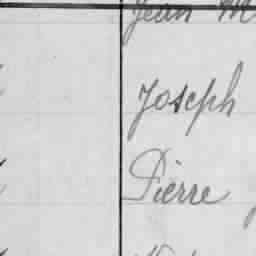 Jean M
Joseph
Pierre